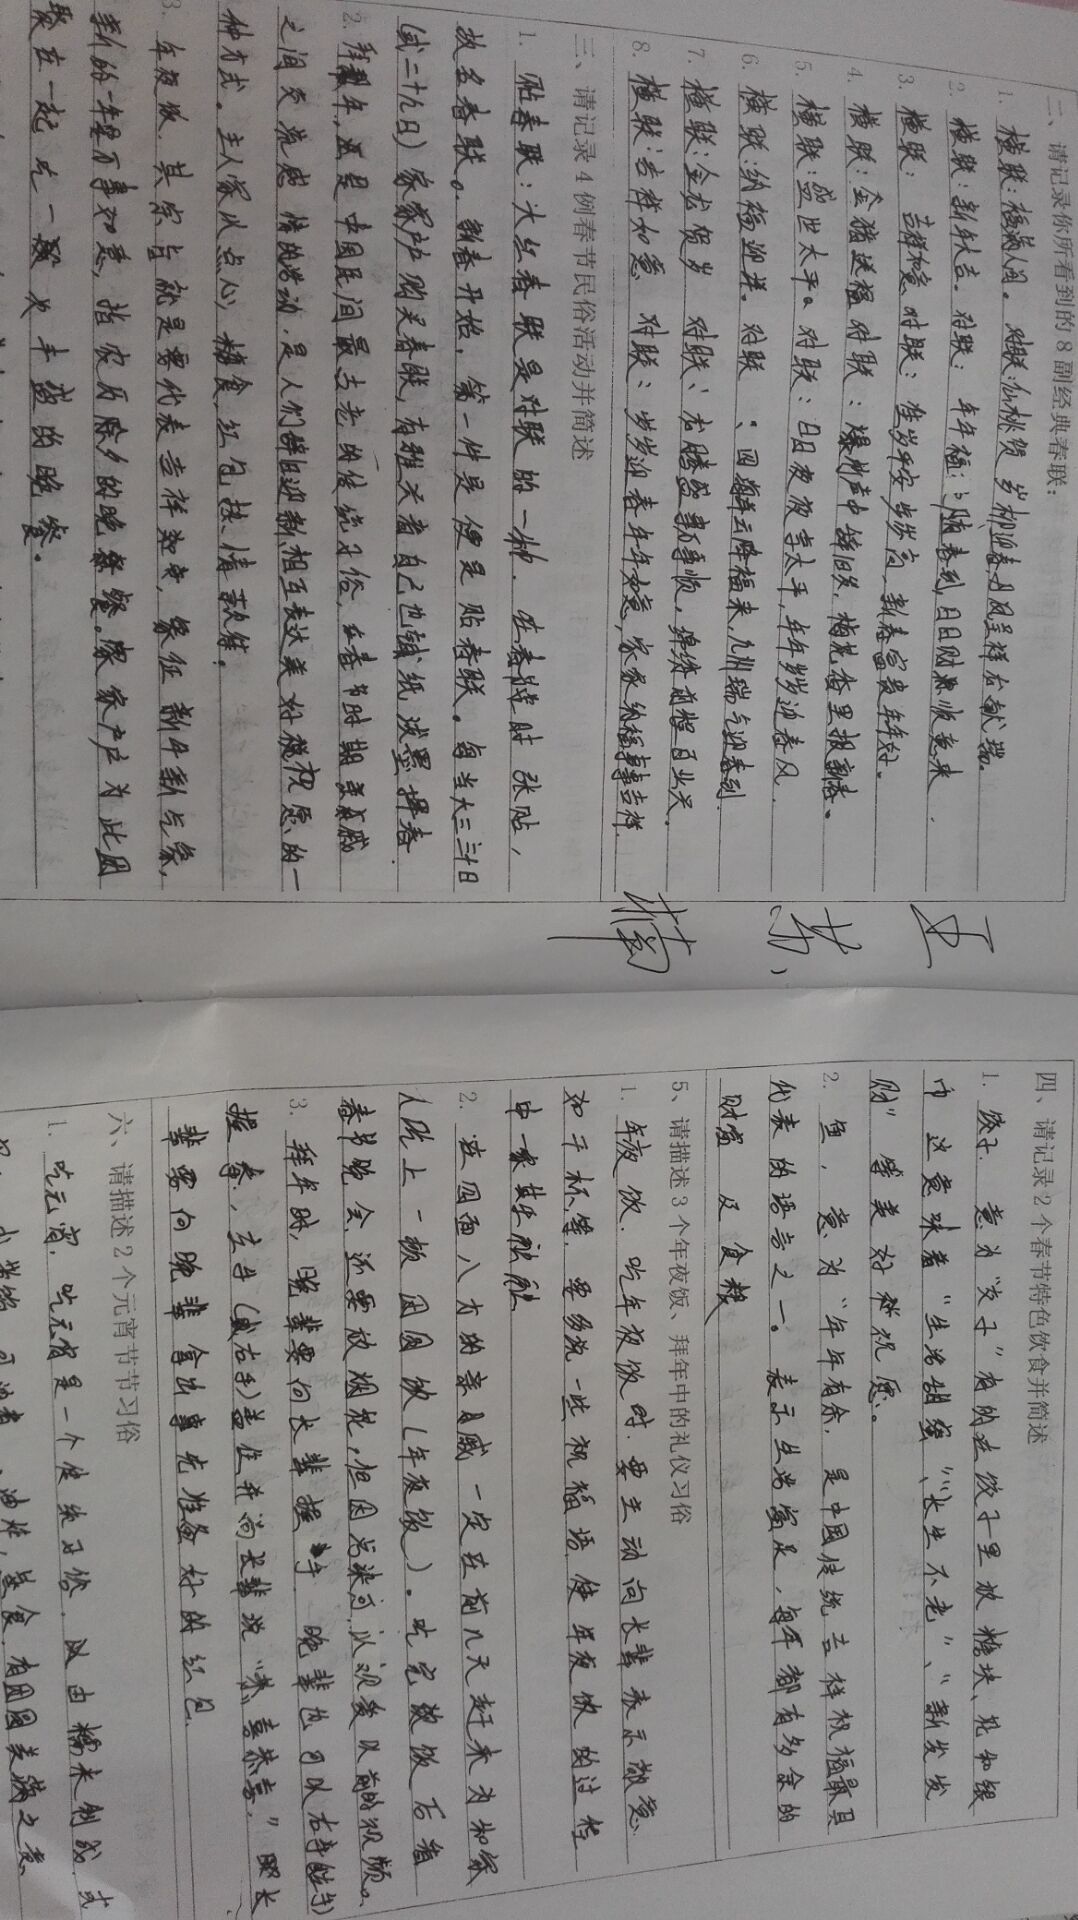 二、请记录你所看到的8副经典春联：
1. 横联：福满人间。对联：仙桃贺岁柳迎春丹凤呈祥龙献瑞。
2. 横联：新年大吉。对联：年年福随春到，日日财源顺意来.
3. 横联：吉祥如意 对联：准岁平安步步高，新春富贵年年好。
4. 横联：金猪送福 对联：爆竹声中辞旧岁，梅花香里报新春。
5. 横联：盛世太平。对联：日日夜夜享太平，年年岁岁迎春风.
6. 横联：纳福迎祥。对联：四海云降福来九州瑞气迎春到
7. 横联：金龙贺岁 对联：龙腾盛事顺，锦绣前程百业兴.
8. 横联：吉祥如意 对联：岁岁迎春年年如意，家家纳福事事吉祥
三、请记录4例春节民俗活动并简述
1. 贴春联：大红春联是对联的一种. 在春节时张贴，
故名春联。新春开始，第一件是便是贴春联。每当大三三十日
(或二十九日) 家家户户购买春联，有雅兴者自己也铺纸泼墨挥春
2. 拜年，这是中国民间最古老的传统习俗，在春节时期亲戚
之间交流感情的活动.是人们辞旧迎新.相互表达美好祝愿的一
种方式。主人家以点心，糖食，红包热情款待。
3. 年夜饭，其宗旨就是要代表吉祥如意，象征新年新气象，
新的一年里万事如意，指农历除夕的晚餐。家家户户为此团
聚在一起吃一顿丰盛的晚餐。
王
艺
楠
四、请记录2个春节特色饮食并简述
1. 饺子. 意为“交子”有的在饺子里放糖块、花和银
币 这意味着“生活甜蜜”、“长生不老”、“新发发
财”等美好祝愿。
2. 鱼，意为“年年有余，是中国传统吉祥祝福最具
代表的语言之一。表示生活富足，每年都有多余的
财富及食粮
5、请描述3个年夜饭、拜年中的礼仪习俗
1. 年夜饭. 吃年夜饭时. 要主动向长辈表示敬意.
如干杯等. 要多说一些祝福语. 使年夜饭的过程
中一家其乐融融
2. 在四面八方的亲戚一定在前几天赶来为和家
人吃上一顿团圆饭(年夜饭)。吃完饭饭后看
春节晚会.还要放烟花，但因污染可以观发以前的视频。
3. 拜年时，晚辈要向长辈握手. 晚辈也可以右手(左手)
握拳，左手(或右手)盖住并向长辈说“恭喜恭喜.”跟长
辈要向晚辈拿出事先准备好的红包.
六、请描述2个元宵节节习俗
1. 吃元宵. 吃元宵是一个传统习俗. 以由糯米制成. 或
油炸，蒸食，有团圆美满之意